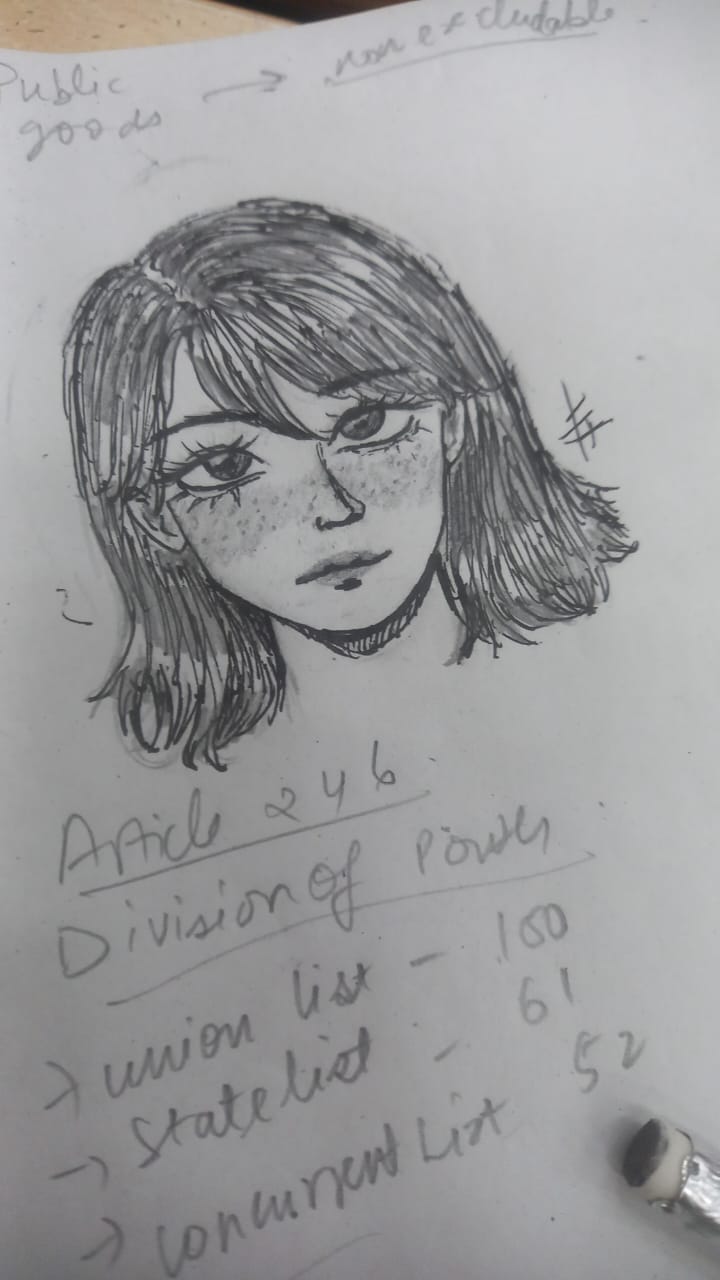 Public → non excludable
goods
Article 246
Division of Power
→ union list - 100
→ State list - 61
→ concurrent List 52